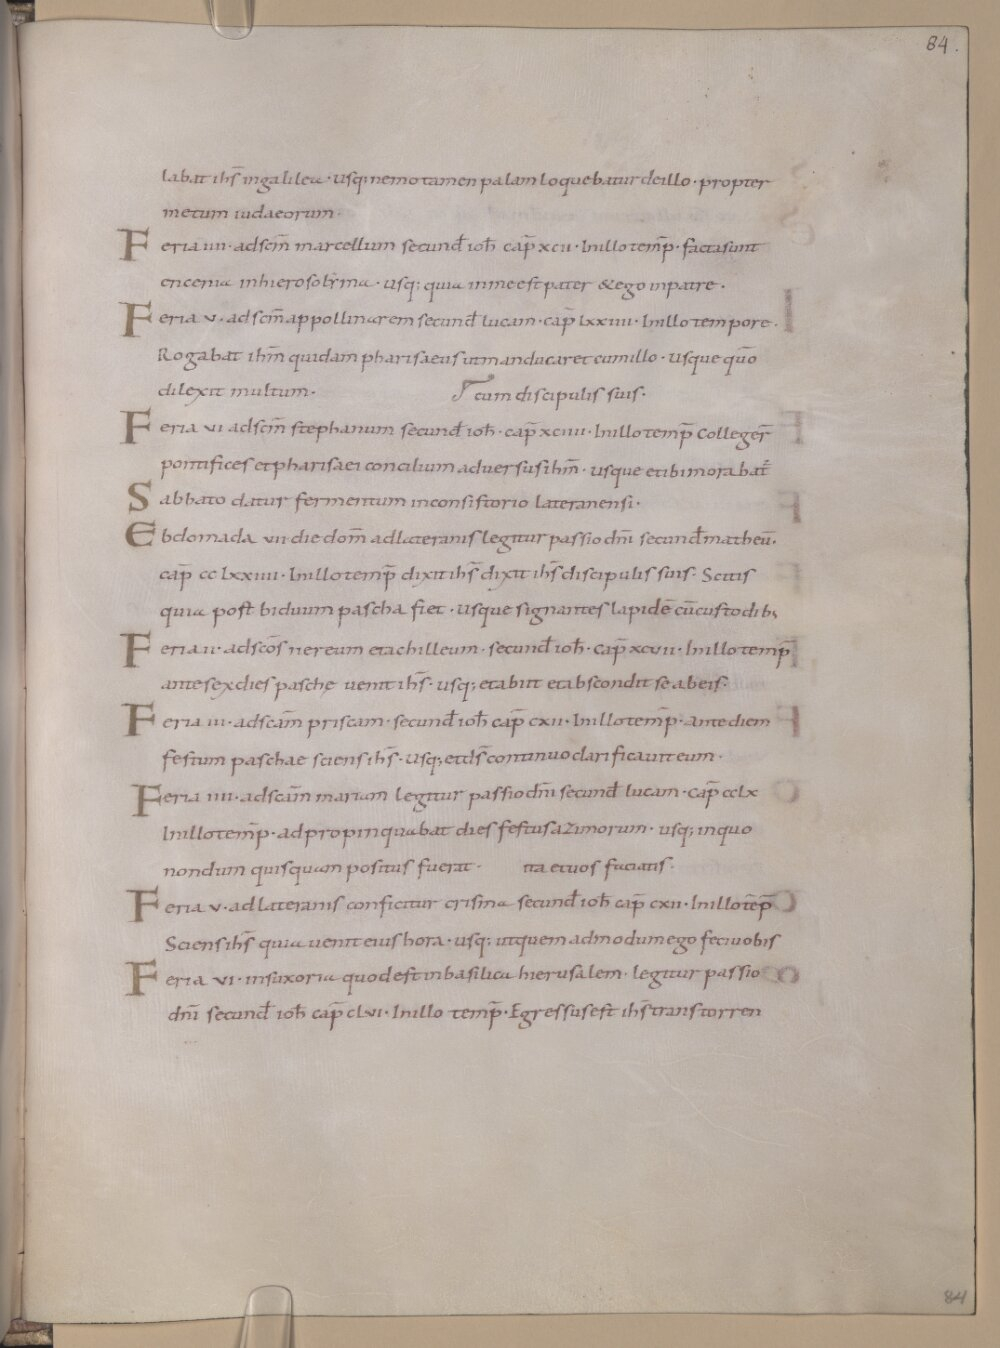 84.
labat ihs̄ ingalilea · usq; nemo tamen palam loquebatur deillo · propter
metum iudaeorum ·
Feria iiii · adscm̄ marcellum secund̄ ioh̄ cap̄ xcii · Inillo temp̄ · facta sunt
encenia inhierosolyma · usq; quia inme est pater & ego inpatre ·
Feria v · adscm̄ appollinarem secund̄ lucam · cap̄ lxxiiii · Inillo tempore ·
Rogabat ihm̄ quidam pharisaeus ut manducaret cumillo · usque quō
dilexit multum · cum discipulis suis ·
Feria vi adscm̄ stephanum secund̄ ioh̄ · cap̄ xciiii · Inillo temp̄ Colleger̄
pontifices et pharisaei concilium aduersus ihm̄ · usque et ibi morabat̄
Sabbato datur fermentum inconsistorio lateranensi ·
Ebdomada vii die dom̄ adlateranis legitur passio dn̄i secund̄ matheū ·
cap̄ cclxxiiii · Inillo temp̄ dixit ihs̄ dixit ihs̄ discipulis suis · Scitis
quia post biduum pascha fiet · usque signantes lapidē cū custodib;
Feria ii · adscōs nereum et achilleum · secund̄ ioh̄ · cap̄ xcvii · Inillo temp̄
ante sex dies pasche uenit ihs̄ · usq; et abiit et abscondit se abeis ·
Feria iii · adscām priscam · secund̄ ioh̄ cap̄ cxii · Inillo temp̄ · ante diem
festum paschae sciens ihs̄ · usq; et ds̄ continuo clarificauit eum ·
Feria iiii · adscām mariam legitur passio dn̄i secund̄ lucam · cap̄ cclx
Inillo temp̄ · adpropinquabat dies festus azimorum · usq; inquo
nondum quisquam positus fuerat · ita et uos faciatis ·
Feria v · adlateranis conficitur crisma secund̄ ioh̄ cap̄ cxii · Inillo tēp̄
Sciens ihs̄ quia uenit eius hora · usq; utquemadmodum ego feci uobis
Feria vi · insuxoria quod est inbasilica hierusalem · legitur passio
dn̄i secund̄ ioh̄ cap̄ clvi · Inillo temp̄ · Egressus est ihs̄ trans torren
84